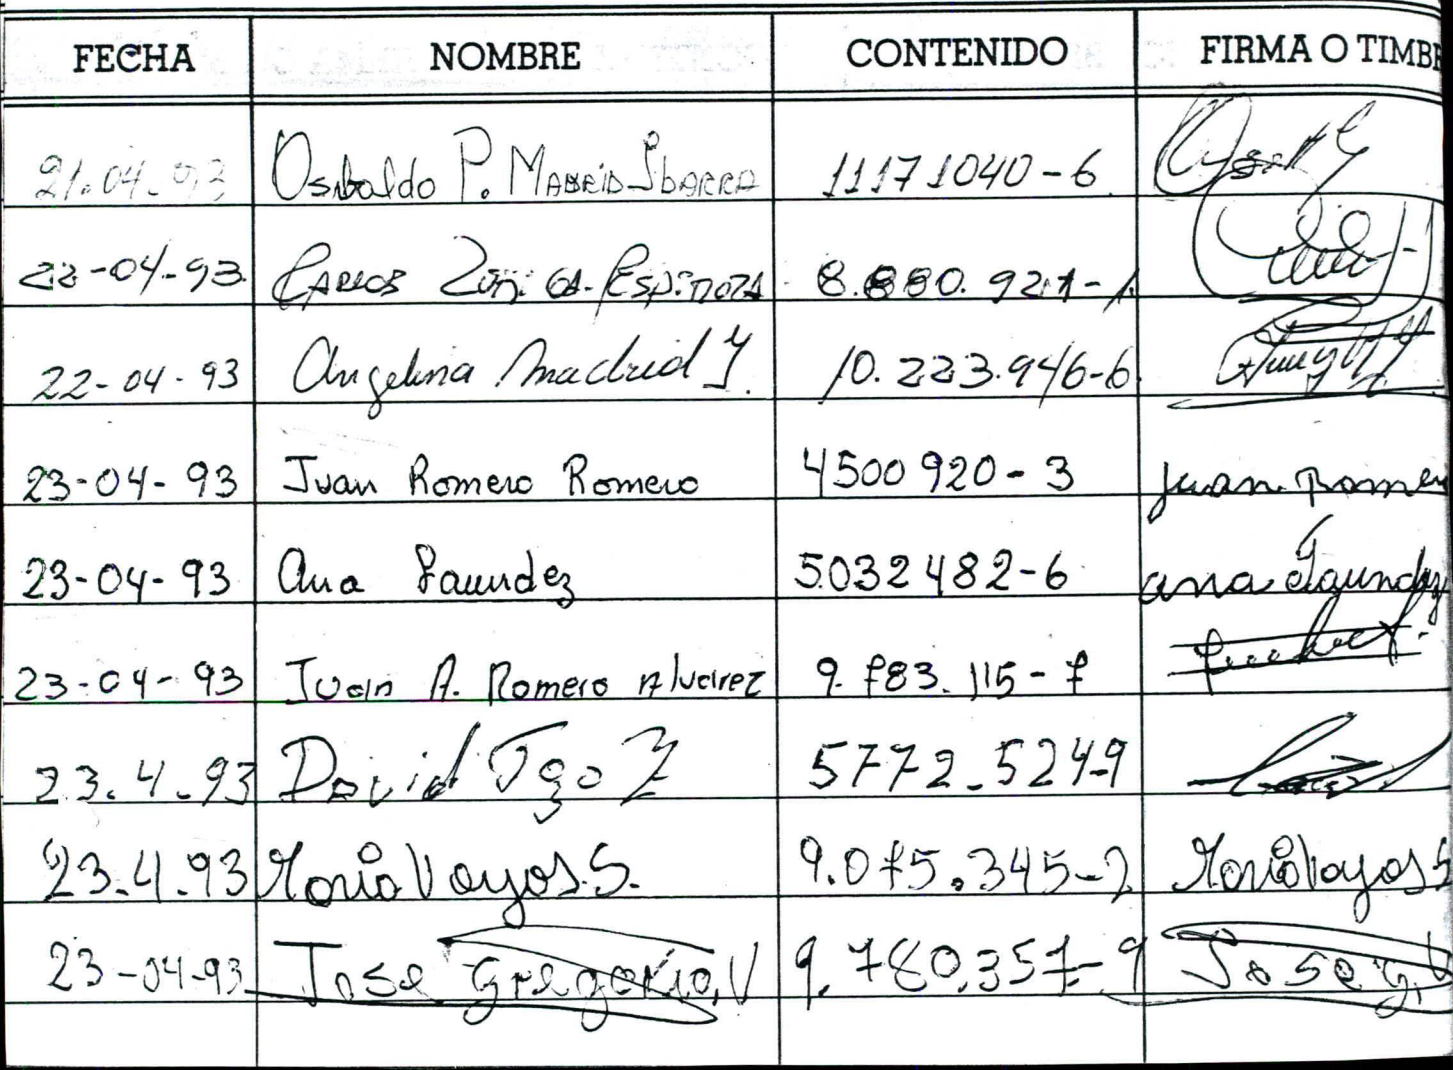 FECHA NOMBRE CONTENIDO FIRMA O TIMB
21.04-93 Osvaldo P. Madrid Ibarra 11171040-6
22-04-93 Carlos Zuñiga Espinoza 8.880.921-1
22-04-93 Angelina Madrid Y. 10.223.946-6
23-04-93 Juan Romero Romero 4500920-3 Juan Romer
23-04-93 Ana Saundez 5.032482-6 ana Saundez
23-04-93 Juan A. Romero Alvarez 9.783.115-7
23.4.93 David 5772.524-9
23.4.93 Maria Voyos.S. 9.075.345-2 Maria Voyos S
23-04-93 Jose Gregorio,V 9.780,351-9 Jose g,V